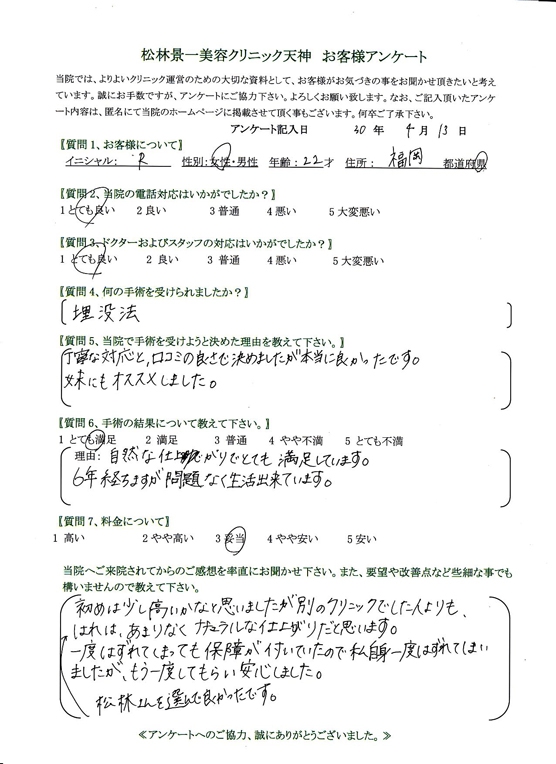 松林景一美容クリニック天神 お客様アンケート
当院では、よりよいクリニック運営のための大切な資料として、お客様がお気づきの事をお聞かせ頂きたいと考え
ています。誠にお手数ですが、アンケートにご協力下さい。よろしくお願い致します。なお、ご記入頂いたアンケ
ート内容は、匿名にて当院のホームページに掲載させて頂く事もございます。何卒ご了承下さい。
アンケート記入日 30 年 4 月 13 日
【質問1、お客様について】
イニシャル: R 性別:女性・男性 年齢:22才 住所: 福岡 都道府県
【質問2、当院の電話対応はいかがでしたか?】
1 とても良い 2 良い 3 普通 4 悪い 5 大変悪い
【質問3、ドクターおよびスタッフの対応はいかがでしたか?】
1 とても良い 2 良い 3 普通 4 悪い 5 大変悪い
【質問4、何の手術を受けられましたか?】
埋没法
【質問5、当院で手術を受けようと決めた理由を教えて下さい。】
丁寧な対応と、口コミの良さで決めましたが本当に良かったです。
妹にもオススメしました。
【質問6、手術の結果について教えて下さい。】
1 とても満足 2 満足 3 普通 4 やや不満 5 とても不満
理由: 自然な仕上がりでとても満足しています。
6年経ちますが問題なく生活出来ています。
【質問7、料金について】
1 高い 2 やや高い 3 妥当 4 やや安い 5 安い
当院へご来院されてからのご感想を率直にお聞かせ下さい。また、要望や改善点など些細な事でも
構いませんので教えて下さい。
初めは少し高いかなと思いましたが別のクリニックでした人よりも、
はれは、あまりなくナチュラルな仕上がりだと思います。
一度はずれてしまっても保障が付いていたので私自身一度はずれてしまい
ましたが、もう一度してもらい安心しました。
松林さんを選んで良かったです。
≪アンケートへのご協力、誠にありがとうございました。≫